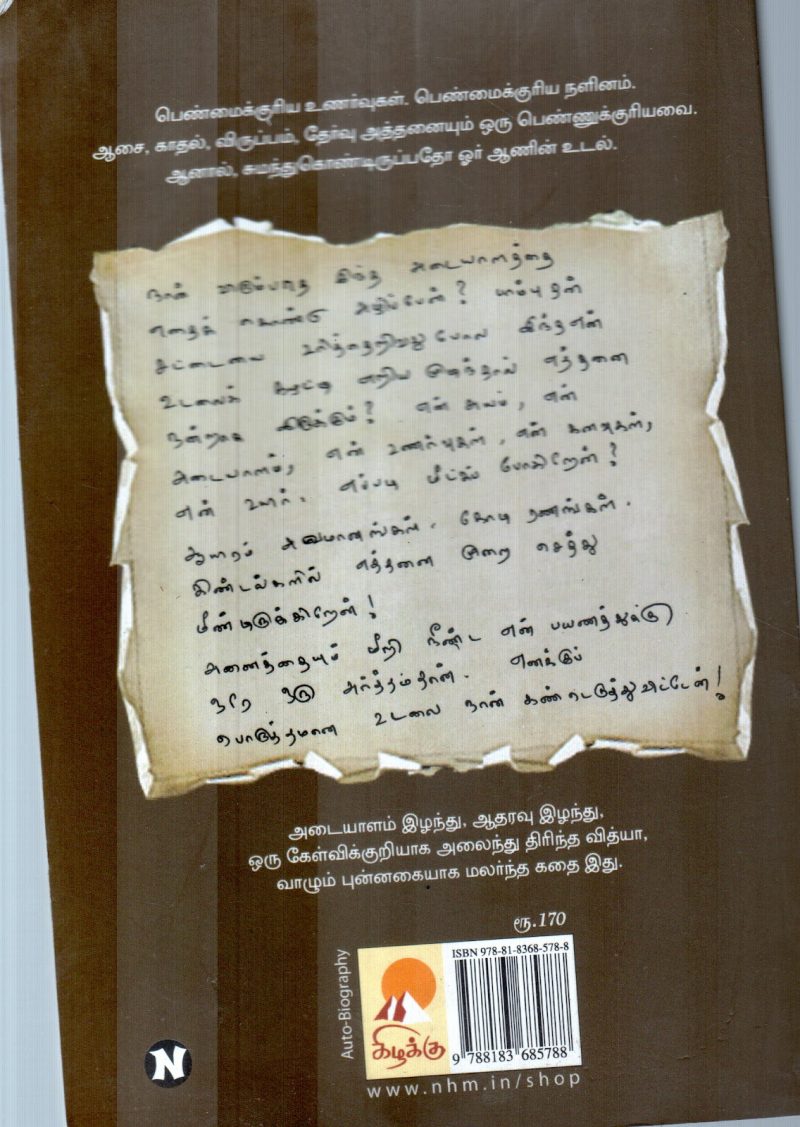 பெண்மைக்குரிய உணர்வுகள். பெண்மைக்குரிய நளினம்.
ஆசை, காதல், விருப்பம், தேர்வு அத்தனையும் ஒரு பெண்ணுக்குரியவை.
ஆனால், சுமந்துகொண்டிருப்பதோ ஓர் ஆணின் உடல்.
நான் இந்த அடையாளத்தை
எதைக் கொண்டு அழிப்பேன்? பாம்பு தன்
சட்டையை உரித்தெறிவது போல இந்த என்
உடலைக் கழட்டி எறிய முடிந்தால் எத்தனை
நன்றாக இருக்கும்? என் சுயம், என்
அடையாளம், என் உணர்வுகள், என் கனவுகள்,
என் உயிர். எப்படி மீட்கப் போகிறேன்?
ஆயிரம் அவமானங்கள். கோடி ரணங்கள்.
கிண்டல்களில் எத்தனை முறை செத்து
மீண்டிருக்கிறேன்!
அனைத்தையும் மீறி நீண்ட என் பயணத்துக்கு
ஒரே ஒரு அர்த்தம்தான். எனக்குப்
பொருத்தமான உடலை நான் கண்டெடுத்துவிட்டேன்!
அடையாளம் இழந்து, ஆதரவு இழந்து,
ஒரு கேள்விக்குறியாக அலைந்து திரிந்த வித்யா,
வாழும் புன்னகையாக மலர்ந்த கதை இது.
ரூ.170
Auto-Biography
கிழக்கு
ISBN 978-81-8368-578-8
9 788183 685788
www.nhm.in/shop
N